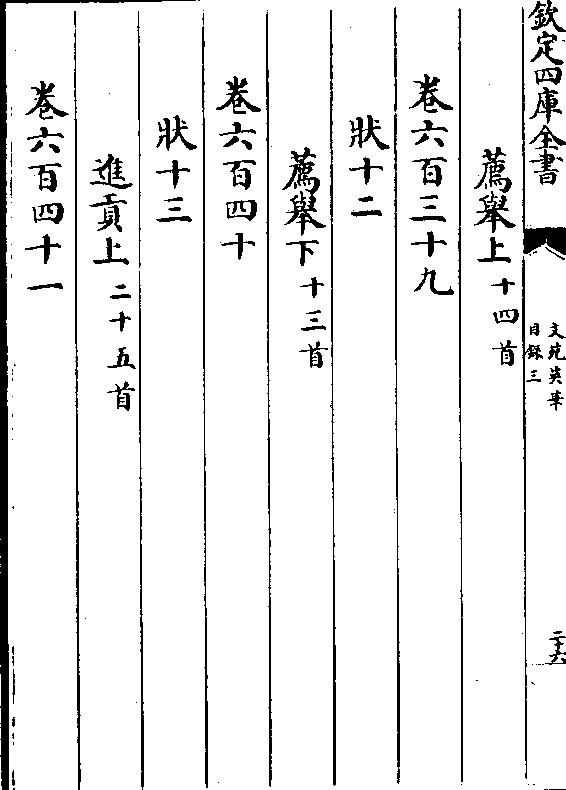 欽定四庫全書
文苑英華
目録三
二十六
薦舉上十四首
卷六百三十九
狀十二
薦舉下十三首
卷六百四十
狀十三
進貢上二十五首
卷六百四十一